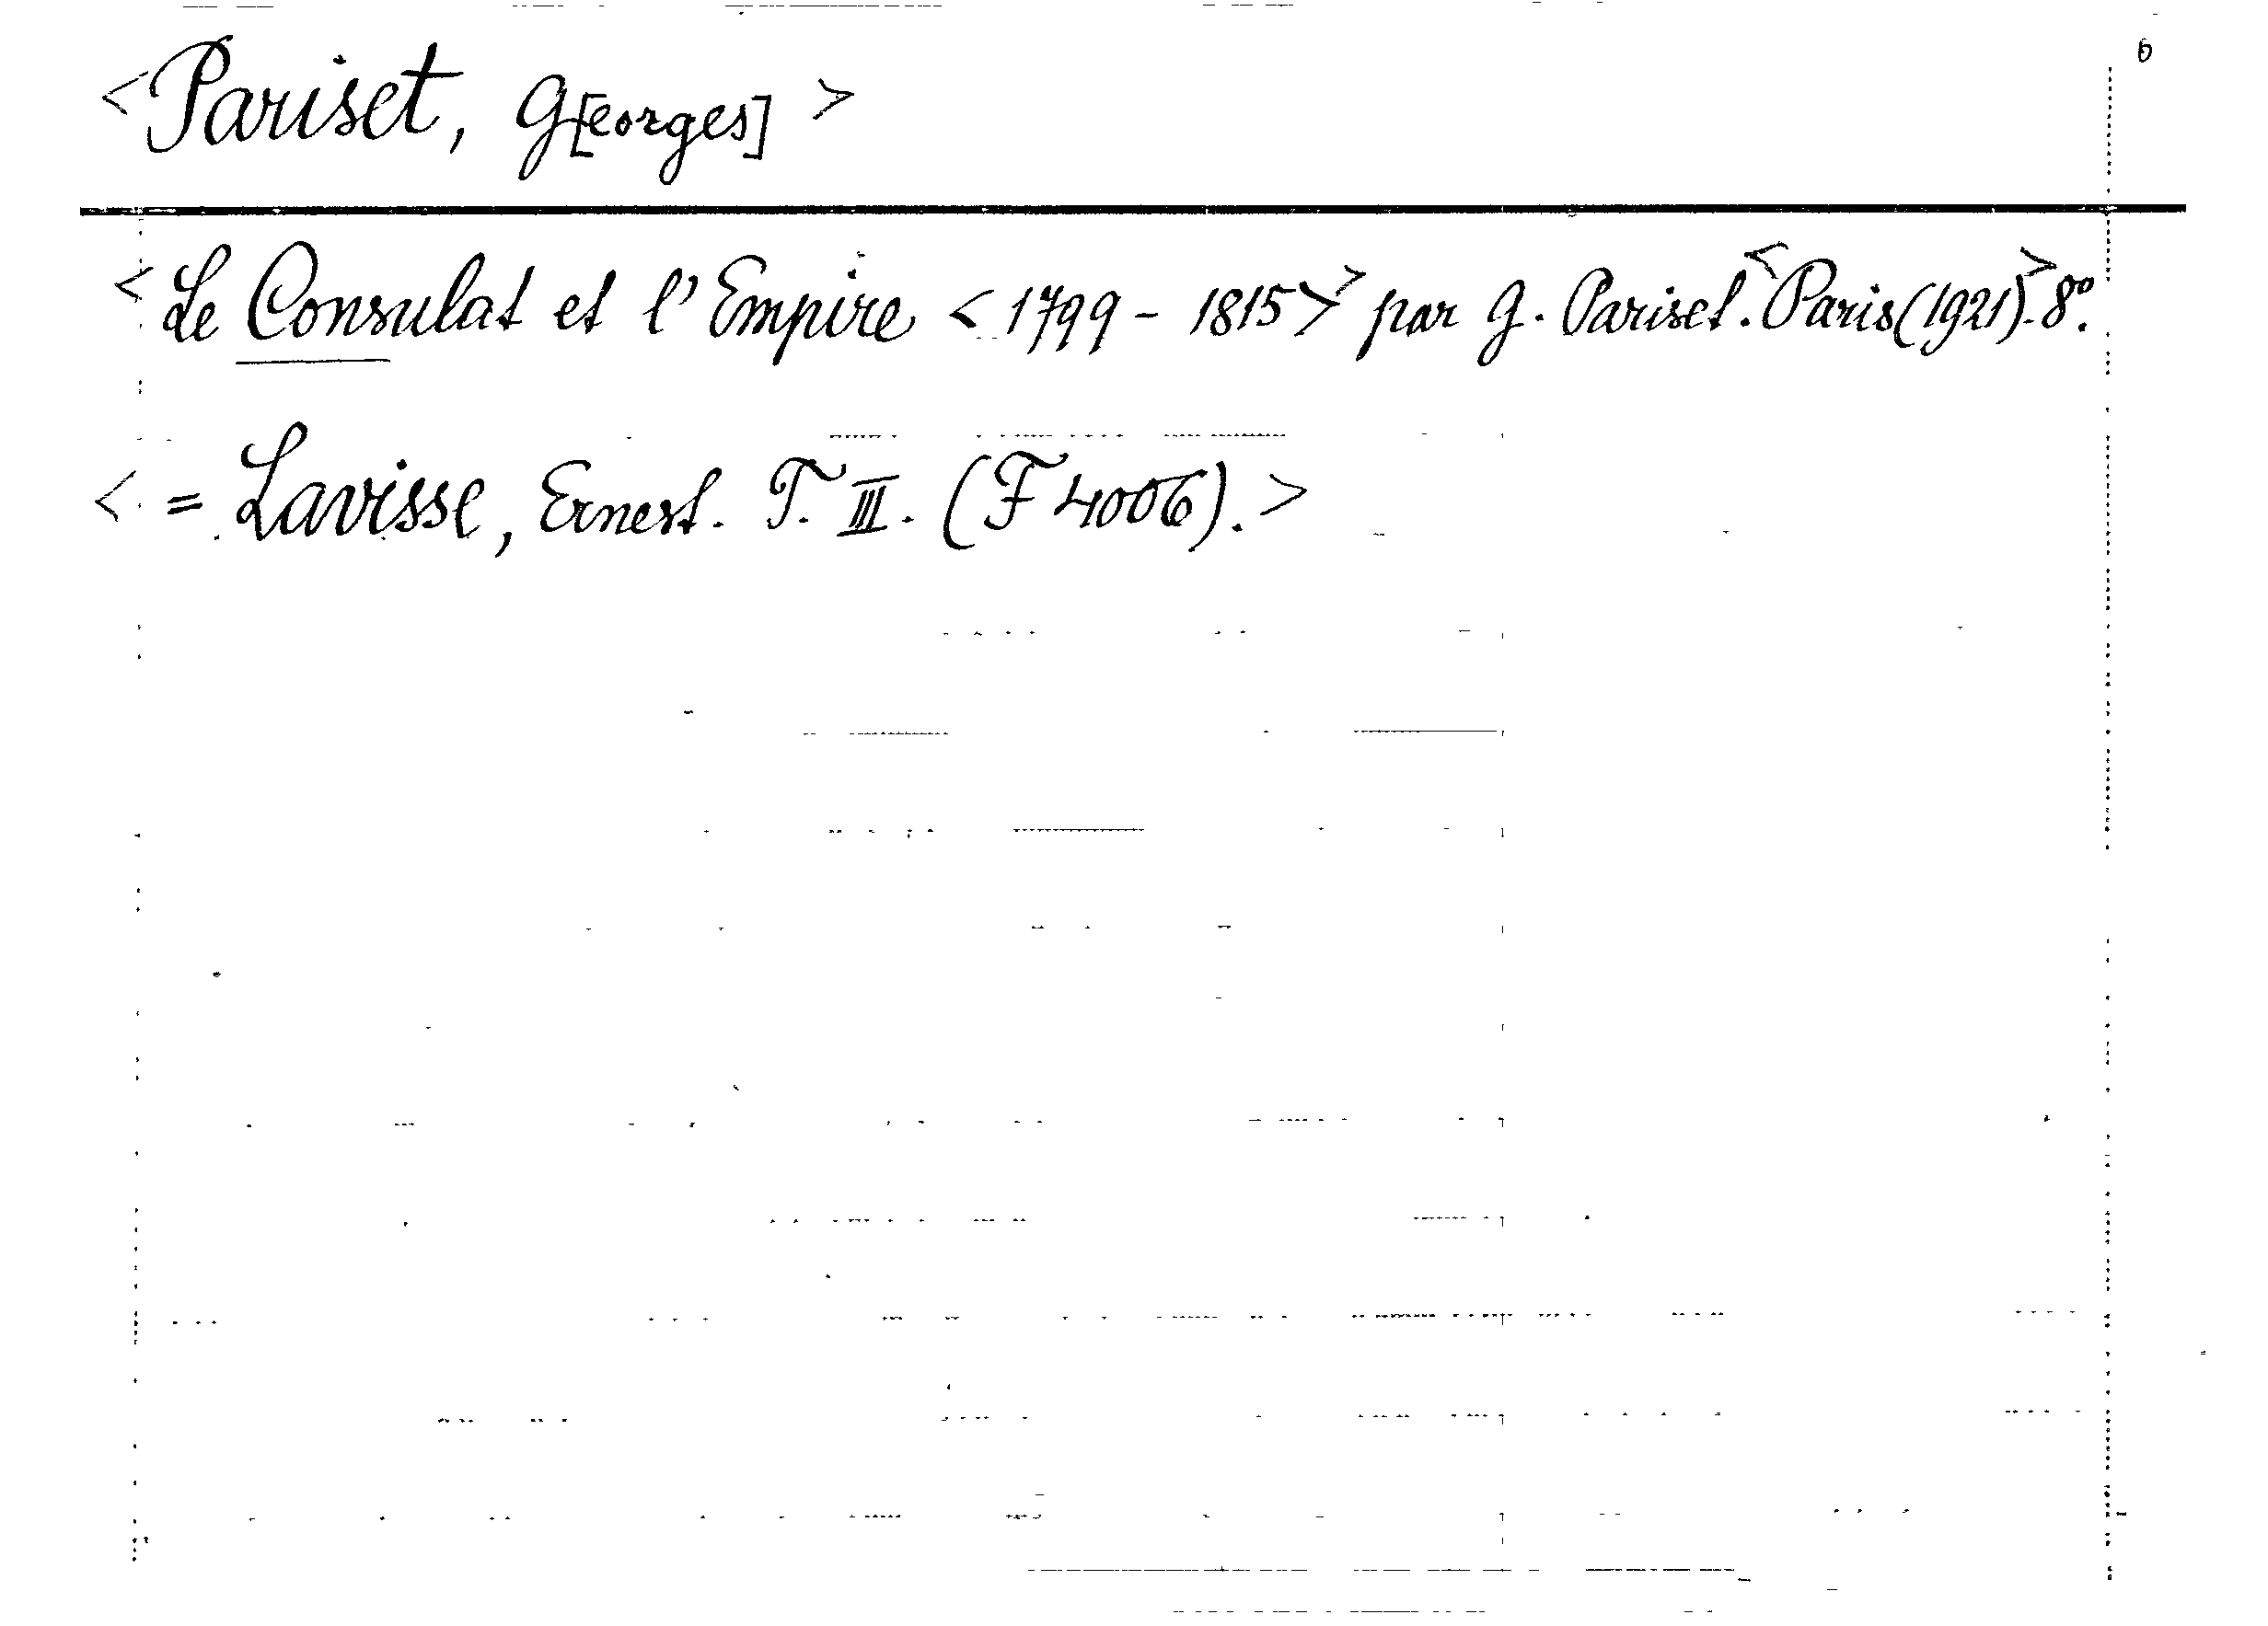 6
<Pariset, G[eorges]>
<Le Consulat et l'Empire <1799 - 1815>> par G. Pariset. <Paris (1921)>. 8°.
< = Lavisse, Ernest. T. III. (F 4006). >